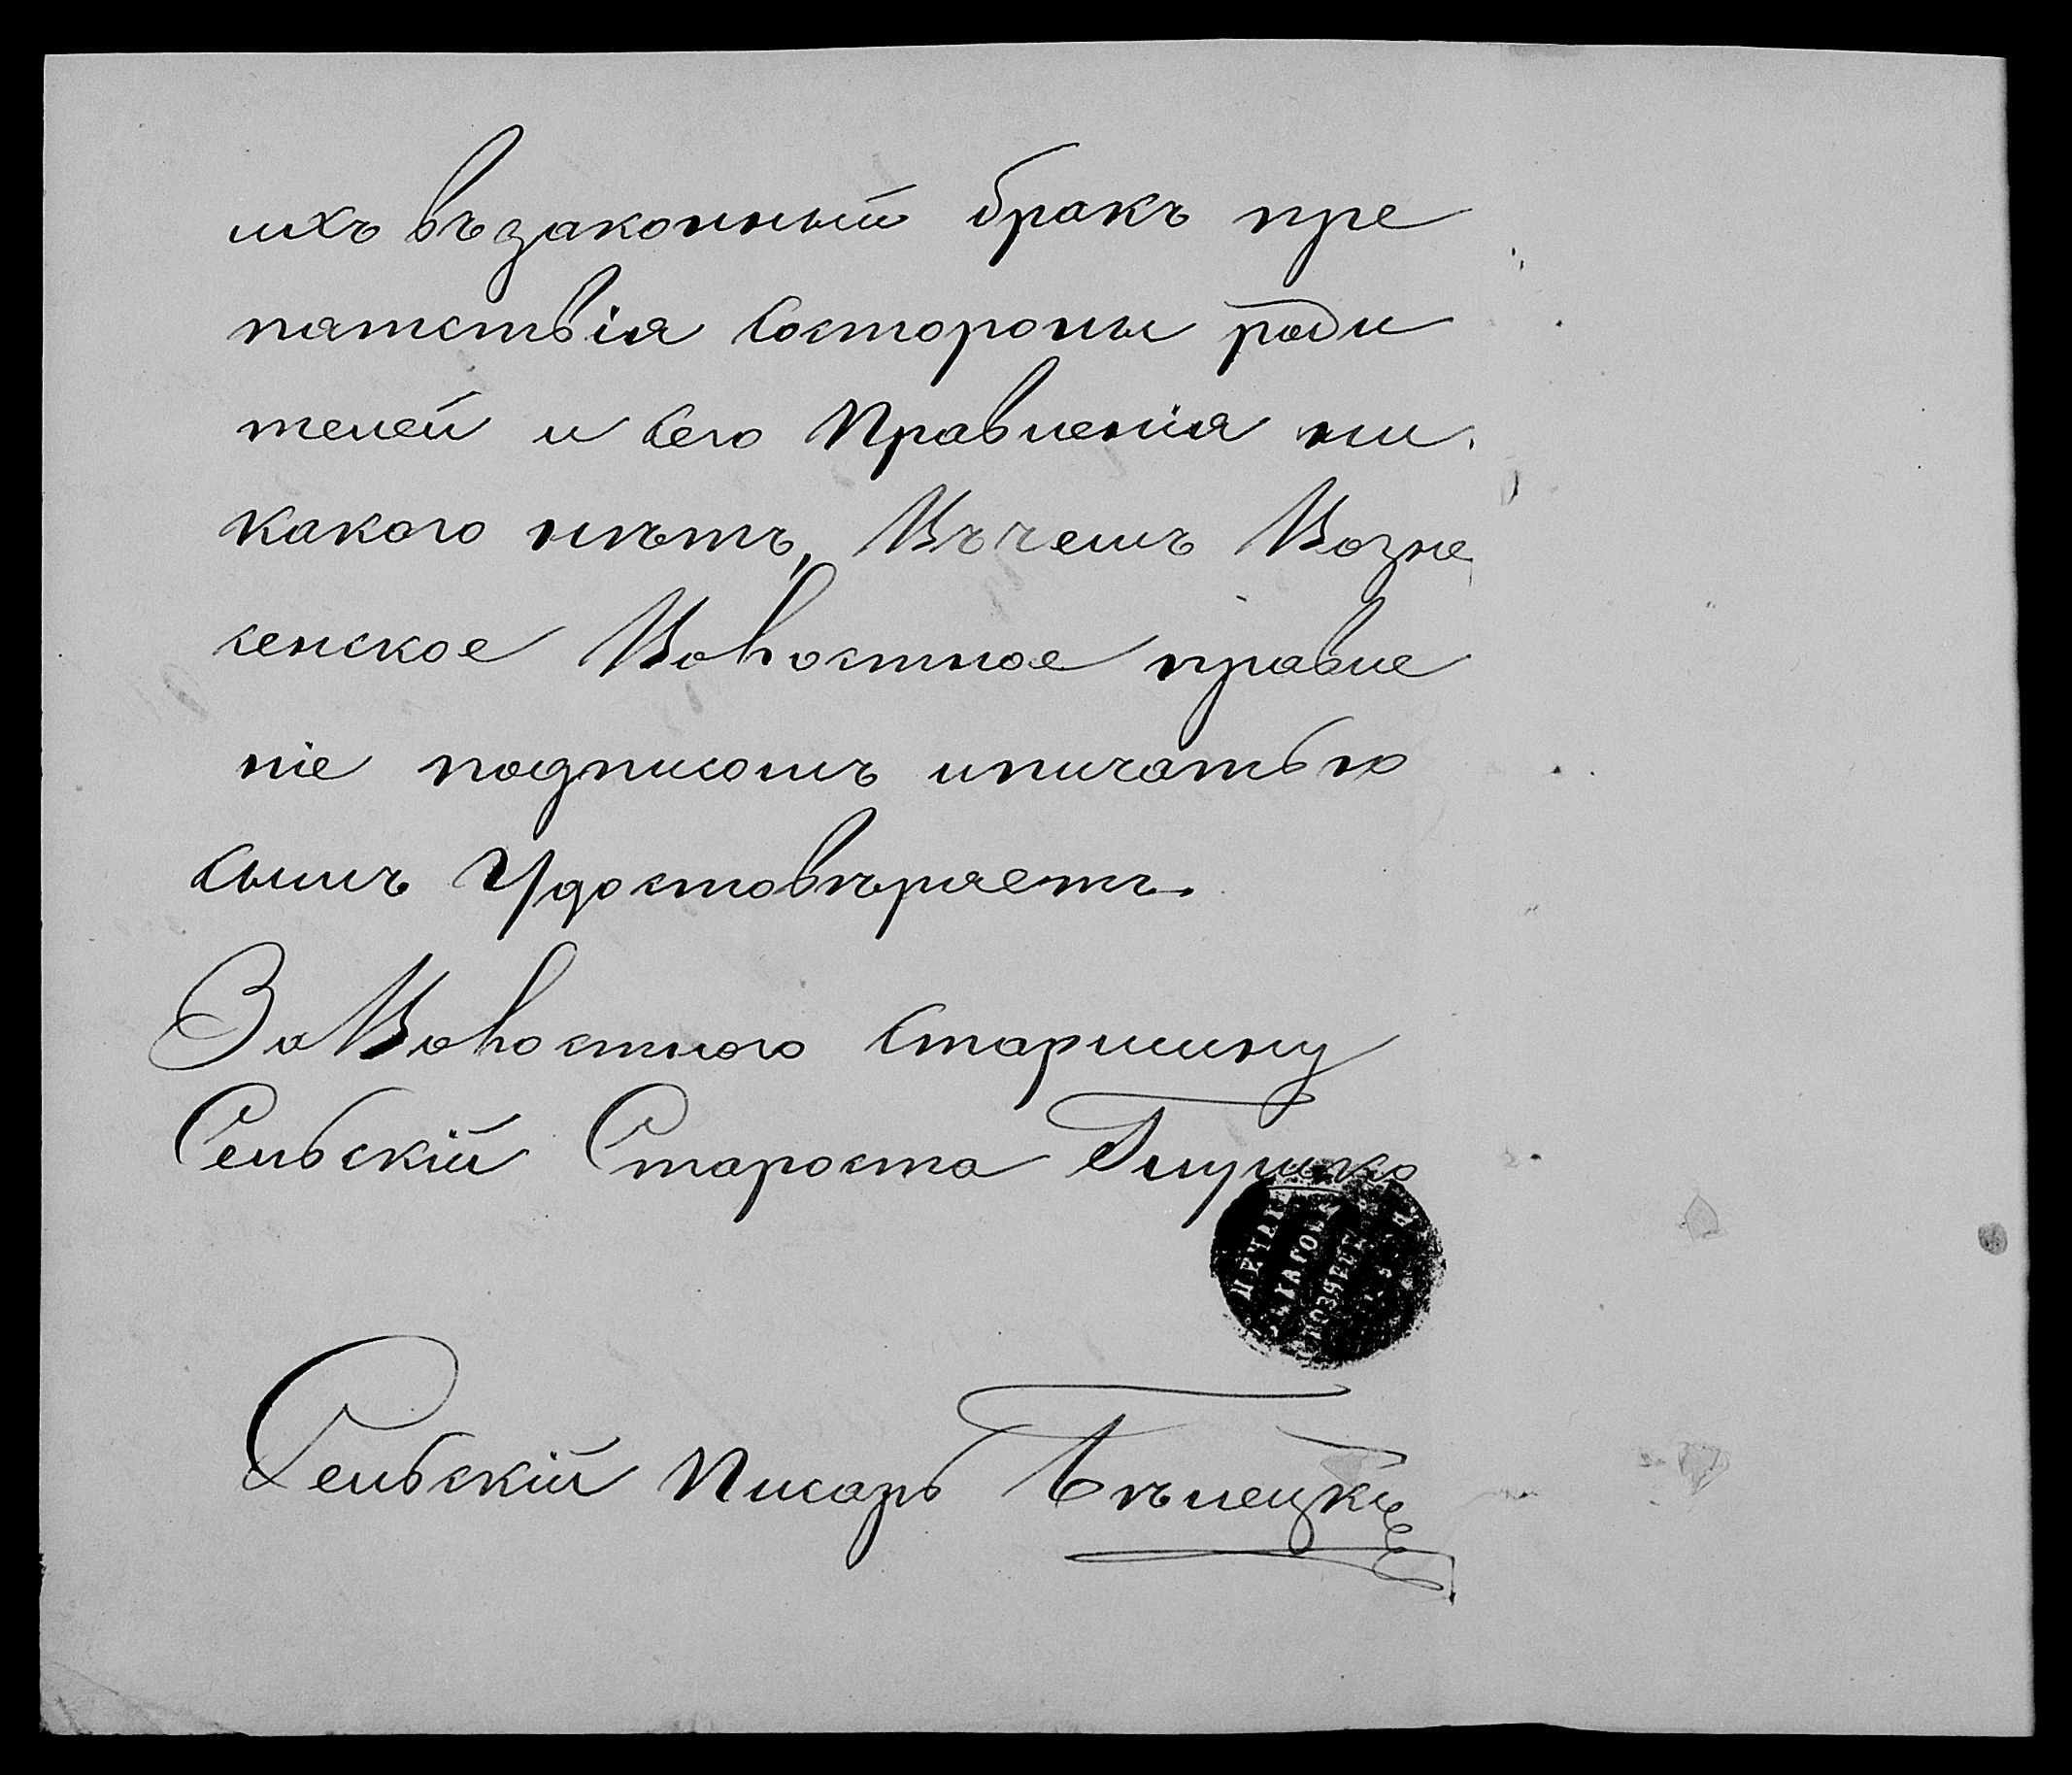 ихъ възаконный бракъ пре
патствія состороны роди
телей и сего Правленія ни
какого нѣтъ, Въчемъ Возне
сенское Волостное правле
ніе подписомъ ипичатью
сымъ Удостовѣряетъ.
За Волостного старшину
Сельскій Староста Глушко
ПЕЧАТЬ
Сельскій Писарь Бѣлецкі